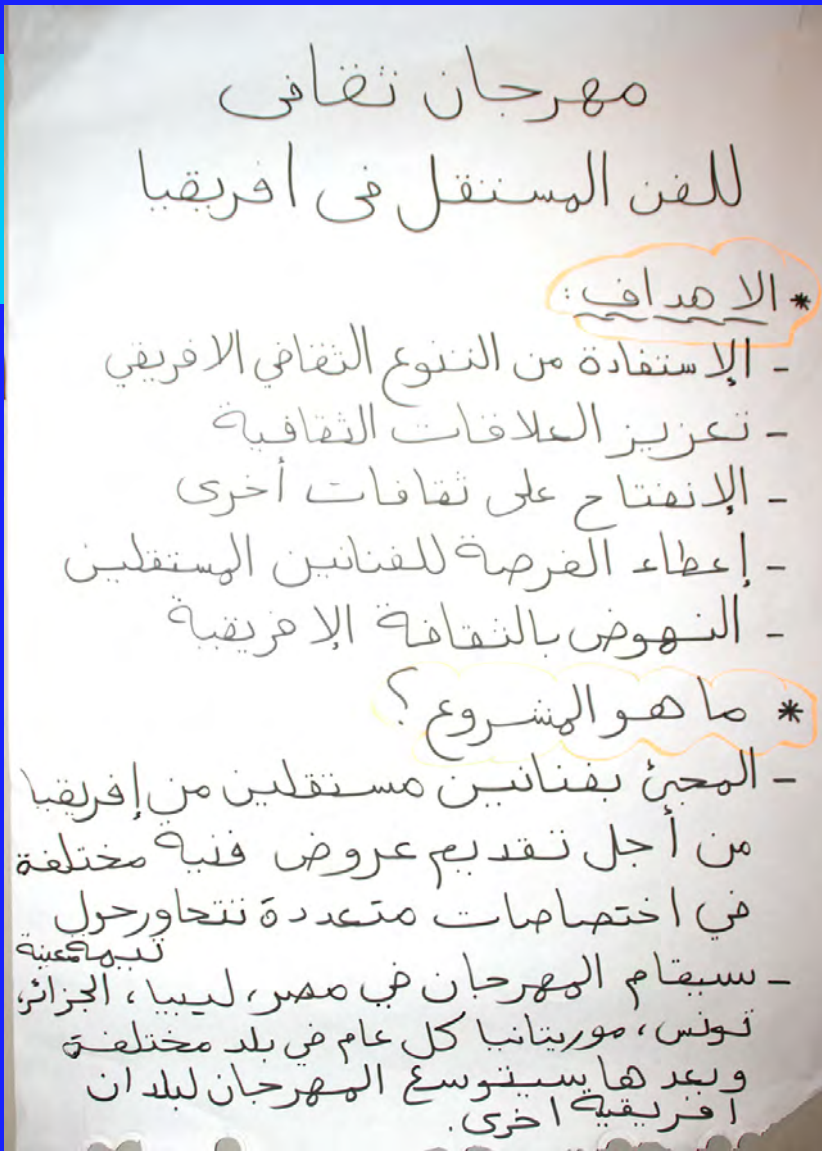 مهرجان ثقافى
للفن المستقل فى افريقيا
* الاهداف :
- الإستفادة من التنوع الثقافي الافريقي
- تعزيز العلاقات الثقافية
- الإنفتاح على ثقافات أخرى
- إعطاء الفرصة للفنانين المستقلين
- النهوض بالثقافة الإفريقية
* ما هو المشروع ؟
- المجئ بفنانين مستقلين من إفريقيا
من أجل تقديم عروض فنية مختلفة
في اختصاصات متعددة تتحاور حول
تيمة معينة
- سيقام المهرجان في مصر، ليبيا، الجزائر،
تونس، موريتانيا كل عام في بلد مختلفة
وبعدها سيتوسع المهرجان لبلدان
افريقية اخرى.